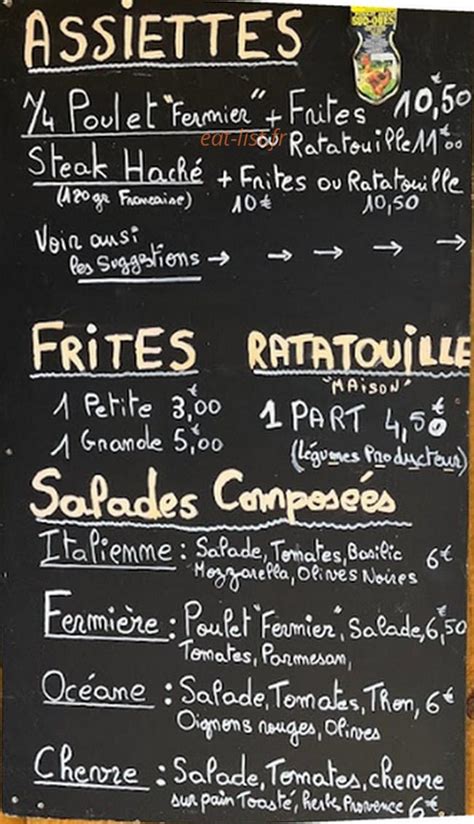 ASSIETTES
SUD-OUEST
1/4 Poulet "Fermier" + Frites 10,50€
eat-list.fr
ou Ratatouille 11€00
Steak Haché + Frites ou Ratatouille
(120gr Francaise) 10€ 10,50
Voir aussi
les Suggestions → → → → →
FRITES RATATOUILLE
"MAISON"
1 Petite 3,00€
1 Grande 5,00€
1 PART 4,50€
(légumes Producteur)
Salades Composées
Italienne : Salade, Tomates, Basilic 6€
Mozzarella, Olives Noires
Fermière : Poulet "Fermier", Salade, 6,50€
Tomates, Parmesan,
Océane : Salade, Tomates, Thon, 6€
Oignons rouges, Olives
Chevre : Salade, Tomates, chevre
sur pain Toasté, herbe Provence 6€